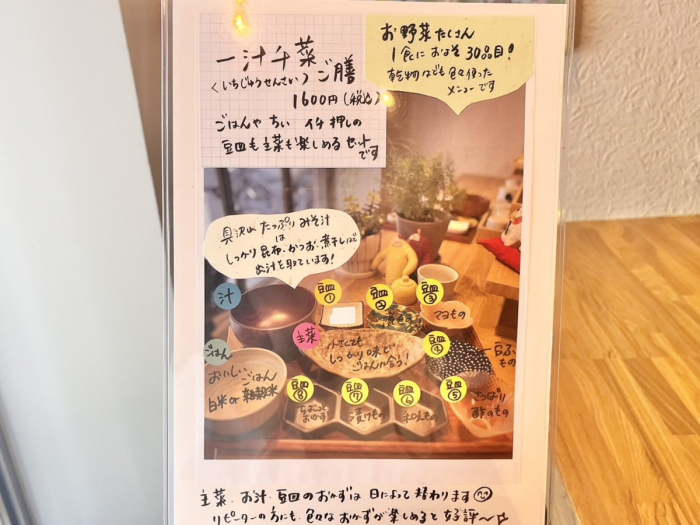 一汁千菜ご膳
(いちじゅうせんさい)
1600円(税込)
ごはんや ちぃ イチ押しの
豆皿も主菜も楽しめるセット
です
お野菜たくさん
1食に およそ 30品目!
乾物なども色々使った
メニューです
具沢山 たっぷりみそ汁
は
しっかり昆布・かつお・煮干しぼで
お汁を取っています!
汁
豆皿①
豆皿②
豆皿③
マヨもの
主菜
小さくても
しっかり味で
ごはんが合う!
豆皿④
豆ふ
もの
ごはん
おいしい
ごはん
白米or雑穀米
豆皿⑧
ちょこっと
おかず
豆皿⑦
漬けもの
豆皿⑥
和えもの
豆皿⑤
さっぱり
酢のもの
主菜、お汁、豆皿のおかずは 日によって 替わります
リピーターの方にも、色々なおかずが楽しめると好評〜☆